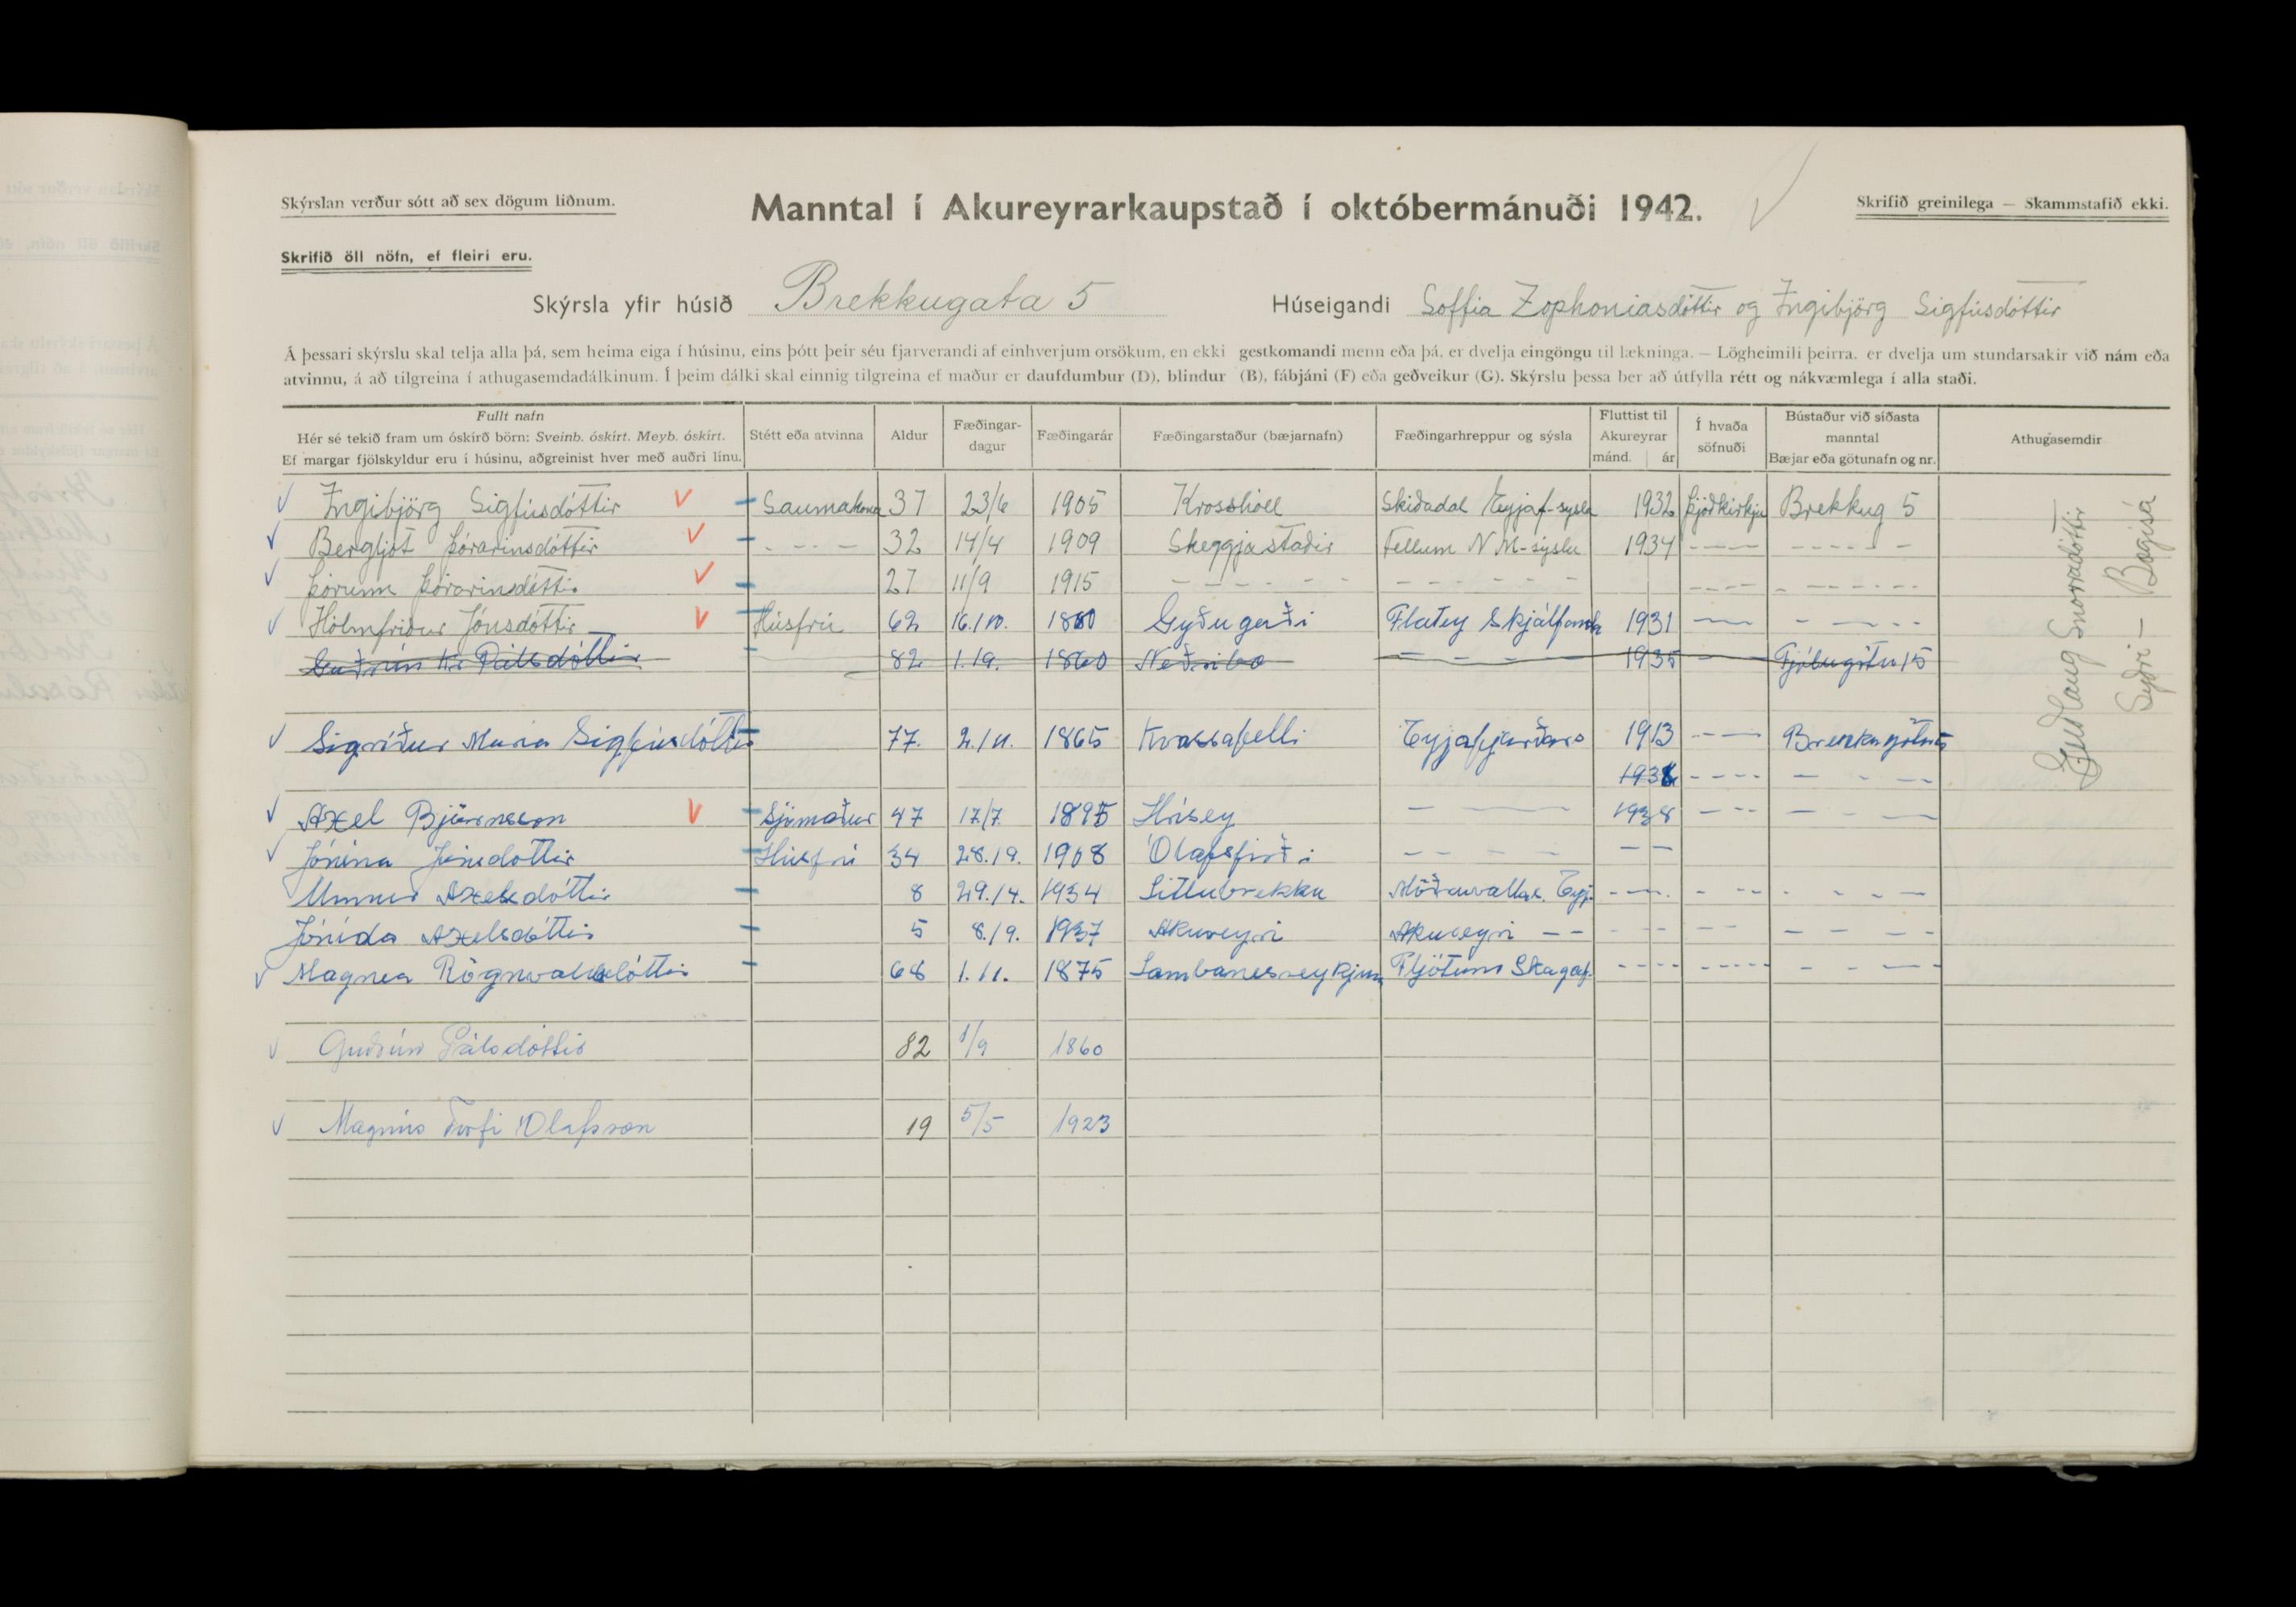 Skýrslan verður sótt að sex dögum liðnum.
Manntal í Akureyrarkaupstað í októbermánuði 1942.
Skrifið greinilega — Skammstafið ekki.
Skrifið öll nöfn, ef fleiri eru.
Skýrsla yfir húsið Brekkugata 5 Húseigandi Soffia Zophoniasdóttir og Ingibjörg Sigfúsdóttir
Á þessari skýrslu skal telja alla þá, sem heima eiga í húsinu, eins þótt þeir séu fjarverandi af einhverjum orsökum, en ekki gestkomandi menn eða þá, er dvelja eingöngu til lækninga. — Lögheimili þeirra. er dvelja um stundarsakir við nám eða
atvinnu, á að tilgreina í athugasemdadálkinum. Í þeim dálki skal einnig tilgreina ef maður er daufdumbur (D), blindur (B), fábjáni (F) eða geðveikur (G). Skýrslu þessa ber að útfylla rétt og nákvæmlega í alla staði.
Fullt nafn
Hér sé tekið fram um óskírð börn: Sveinb. óskírt. Meyb. óskírt.
Ef margar fjölskyldur eru í húsinu, aðgreinist hver með auðri línu.
Stétt eða atvinna
Aldur
Fæðingar-
dagur
Fæðingarár
Fæðingarstaður (bæjarnafn)
Fæðingarhreppur og sýsla
Fluttist til
Akureyrar
mánd. ár
Í hvaða
söfnuði
Bústaður við síðasta
manntal
Bæjar eða götunafn og nr.
Athugasemdir
Ingibjörg Sigfúsdóttir Saumakona 37 23/6 1905 Krosshóll Skiðadal Eyjaf-sysla 1932 Þjóðkirkju Brekkug 5
Bergljót Þórarinsdóttir - - - 32 14/4 1909 Skeggjastaðir Fellum N M-sýslu 1934 - - - - - - - -
Þórunn Þórarinsdóttir 27 11/9 1915 - - - - - - - - - - - - - - - - - - - -
Hólmfriður Jónsdóttir Húsfrú 62 16./10. 1880 Gyðugerði Flatey Skjálfanda 1931 - - - - - -
Guðrún Kr Pálsdóttir 82 1.19. 1860 Neðribæ - - - 1935 - Fjólugötu 15
Sigríður María Sigfúsdóttir 77. 2./11. 1865 Hvassafelli Eyjafjarðars 1913 - - - Brekkugötu 5
1938 - - - - - - -
Axel Björnsson Sjómaður 47 17/7. 1895 Hrísey - - 1938 - - - - - -
Jónína Jónsdóttir Húsfrú 34 28./9. 1908 Ólafsfirði - - - - - -
Unnur Axelsdóttir 8 29./4. 1934 Litlubrekku Möðruvallas. Eyj. - - - - - - - - - -
Jónída Axelsdóttir 5 8./9. 1937 Akureyri Akureyri - - - - - - - - - - - -
Magnea Rögnvaldsdóttir 68 1./1. 1875 Lambanesreykjum Fljótum Skagaf. - - - - - - - - - - - -
Guðrún Pálsdóttir 82 1/9 1860
Magnús Torfi Ólafsson 19 5/5 1923
Guðlaug Snorradóttir
Syðri - Bægisá